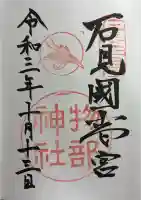 石見國壹宮
物部
神社
令和二年十月十三日